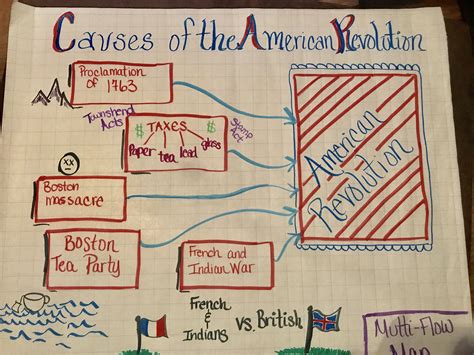 Causes of the American Revolution
Proclamation
of 1763
Townshend
Acts
$ TAXES $
Stamp
Act
Paper tea lead glass
American
Revolution
Boston
massacre
Boston
Tea Party
French and
Indian War
French
&
Indians
vs. British
Multi-Flow
Map